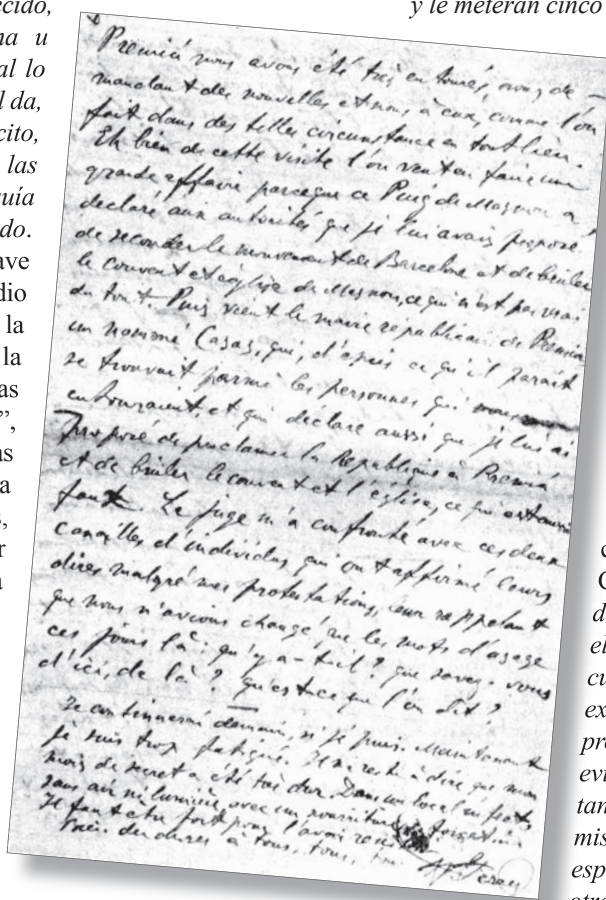 ecido,
na u
al lo
l da,
cito,
las
uía
do.
ave
dio
la
la
as
”,
as
a
s,
r
a
y le meterán cinco
Premiá nous avons été très entourés, nous de
mandant des nouvelles et nous à eux, comme l'on
fait dans des telles circonstance en tout lieu.
Eh bien de cette visite l'on veut en faire une
grande affaire parceque ce Puig de Masnou a
déclaré aux autorités que je lui avais proposé
de seconder le mouvement de Barcelone et de brûler
le couvent et église de Masnou, ce qui n'est pas vrai
du tout. Puis vient le maire républicain de Premiá
un nommé Casas, qui, d'après ce qu'il parait
se trouvait parmi les personnes qui nous
entouraient et qui déclare aussi que je lui ai
proposé de proclamer la République à Premiá
et de brûler le couvent et l'église, ce qui est aussi
faux. Le juge m'a confronté avec ces deux
canailles d'individus qui ont affirmé leurs
dires malgré mes protestations, leur rappelant
que nous n'avions changé que les mots d'usage
ces jours là: qu'y a-t-il? que savez-vous
d'ici, de là? qu'est ce que l'on dit?
Je continuerai demain, si je puis. Maintenant
je suis trop fatigué. Il me reste à dire que mon
mois de secret a été très dur. Dans un local infect
sans air ni lumière, avec une nourriture
Il faut être fort pour l'avoir
Bien des choses à tous, tous,
c
d
el
cu
ex
pro
evi
tan
mis
esp
otro